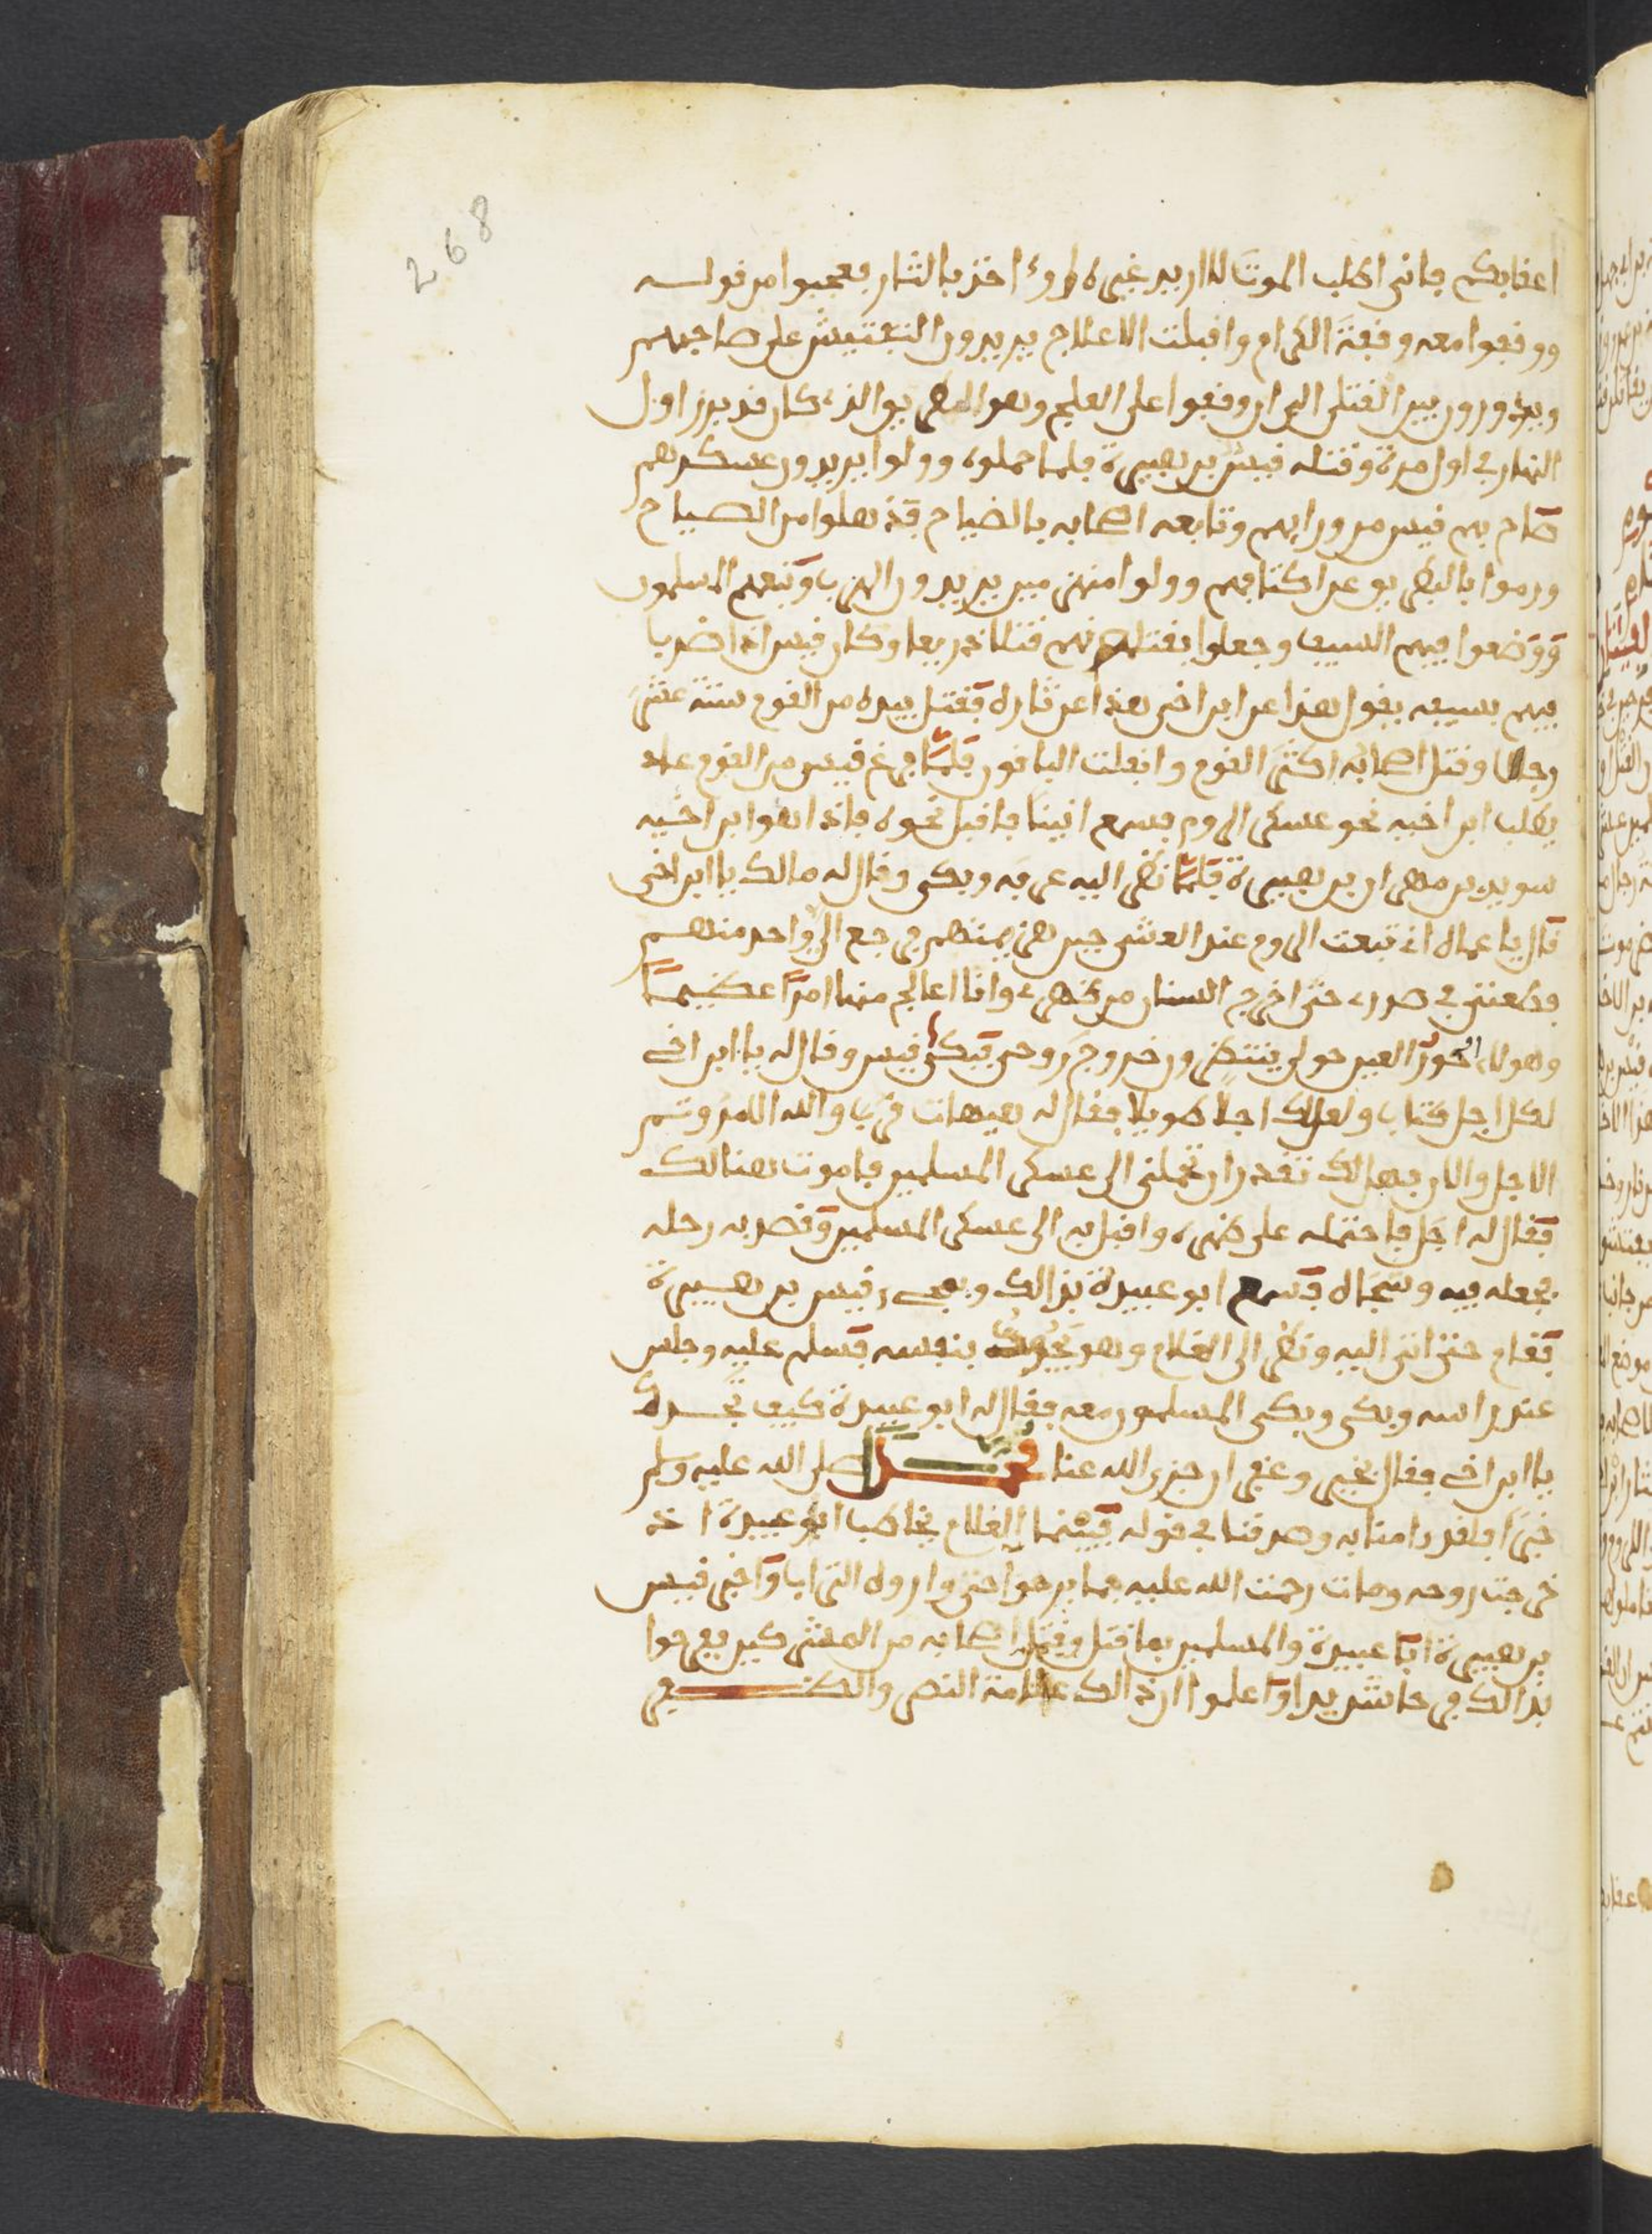 268
اعقابكم فاني اطلب الموت لا اريد غيره او اخذ بالثار فعجبوا من قوله
ووقفوا معه وقفة الكرام واقبلت الاعلاج يريدون التفتيش على صاحبهم
ويدورون بين القتلى الى ان وقفوا على العلج وهو البطريق الذي كان قد برز اول
النهار في اول مرة وقتله قيس بن هبيرة فلما حملوه وولوا يريدون عسكرهم
صاح بهم قيس من ورايهم وتابعه اصحابه بالصياح فذهلوا من الصياح
ورموا بالبطريق عن اكتافهم وولوا منهزمين يريدون الهرب وتبعهم المسلمون
ووضعوا فيهم السيف وجعلوا يقتلونهم قتلا ذريعا وكان قيس اذا ضربا
فيهم بسيفه يقول هذا عن ابن اخي هذا عن ثاره فقتل بيده من القوم ستة عشر
رجلا وقتل اصحابه اكثر القوم وانفلت الباقون فلما فرغ قيس من القوم عاد
يطلب ابن اخيه نحو عسكر الروم فسمع انينا فاقبل نحوه فاذا هو ابن اخيه
سويد بن مهران بن هبيرة فلما نظر اليه عرفه وبكى وقال له مالك يا ابن اخي
قال يا عماه اني تبعت الروم عند العشي حين هزيمتهم فرجع الي واحد منهم
فطعنني في صدري حتى اخرج السنان من ظهري وانا اعالج منها امرا عظيما
وهولاء الحور العين حولي ينتظرون خروج روحي فبكى قيس وقال له يا ابن اخي
لكل اجل كتاب ولعل لك اجلا طويلا فقال له هيهات قرب والله الامر وتم
الاجل والان فهل لك تقدر ان تحملني الى عسكر المسلمين فاموت هنالك
فقال له اجل فاحتمله على ظهره واقبل به الى عسكر المسلمين وقصد به رحله
فجعله فيه وسجاه فسمع ابو عبيدة بذالك وبمجيء قيس بن هبيرة
فقام حتى اتى اليه ونظر الى الغلام وهو يجود بنفسه فسلم عليه وجلس
عند راسه وبكى وبكى المسلمون معه فقال له ابو عبيدة كيف تجدك
يا ابن اخي فقال بخير وغفران جزى الله عنا محمدا صلى الله عليه وسلم
خيرا فلقد امنا به وصدقنا في قوله فبينما الغلام يخاطب ابو عبيدة اذ
خرجت روحه ومات رحمت الله عليه فما برحوا حتى واروه التراب واخبر قيس
بن هبيرة ابا عبيدة والمسلمين بما قتل وقتل اصحابه من المشركين ففرحوا
بذالك فرحا شديدا واعلموا ان ذالك علامة النصر والظفر